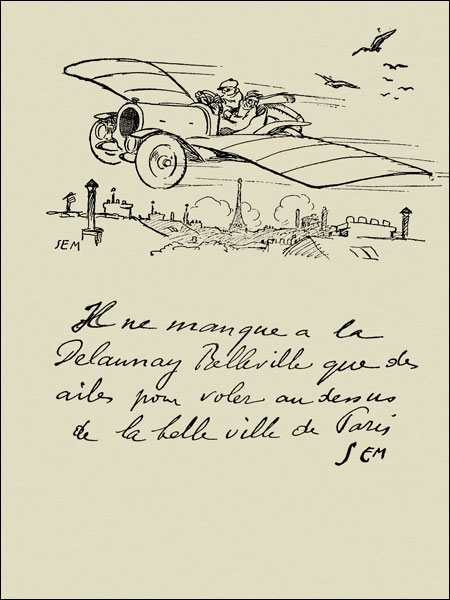 SEM
Il ne manque a la
Delaunay Belleville que des
ailes pour voler au dessus
de la belle ville de Paris
SEM